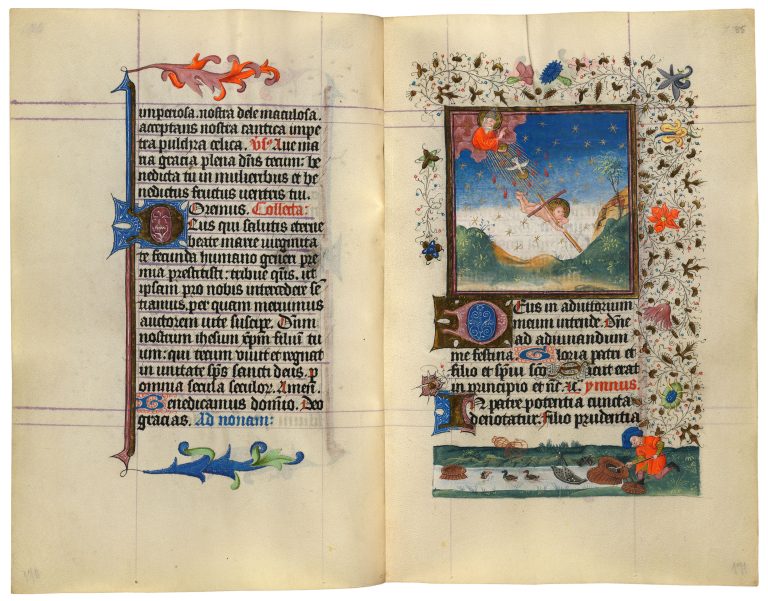 imperiosa. nostra dele maculosa.
acceptans nostra cantica impe
tra pulchra celica. Vs. Aue ma
ria gracia plena dns tecum: be
nedicta tu in mulieribus et be
nedictus fructus uentris tui.
Oremus. Collecta:
Deus qui salutis eterne
beate marie virginita
te fecunda humano generi pre
mia prestitisti: tribue qs. ut
ipsam pro nobis intercedere sē
tiamus. per quam meruimus
auctorem uite suscipe. Dnm
nostrum ihesum xpm filiū tu
um: qui tecum viuit et regnat
in unitate sps sancti deus. p
omnia secula seculor. Amen.
Benedicamus domino. Deo
gracias. Ad nonam:
Deus in adiutorium
meum intende. Dne
ad adiuuandum
me festina. Gloria patri et
filio et spui sco. Sicut erat
in principio et nc. ymnus.
In patre potentia cuncta
denotatur. Filio prudentia